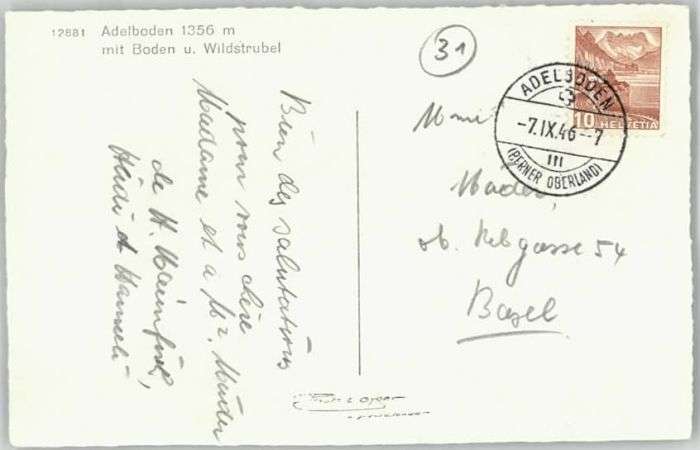 12881 Adelboden 1356 m
mit Boden u. Wildstrubel
31
10 HELVETIA
ADELBODEN
-7.IX.46--7
III
(BERNER OBERLAND)
Bien des salutations
pour vous chère
Madame et à Mr. Mäder
de H.
Heidi et Hanneli
Mäder,
ob. Rebgasse 54
Basel